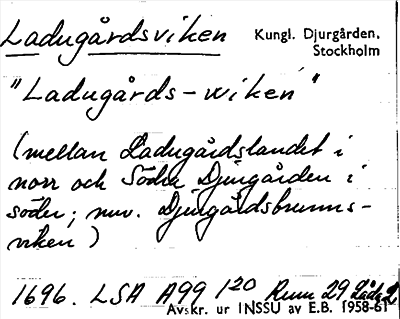 Ladugårdsviken
Kungl. Djurgården,
Stockholm
"Ladugårds-wiken"
(mellan Ladugårdslandet i
norr och Södra Djurgården i
söder; nuv. Djurgårdsbrunns-
viken)
1696. LSA A99 1:20 Rum 29 Låda 2
Avskr. ur INSSU av E.B. 1958-61